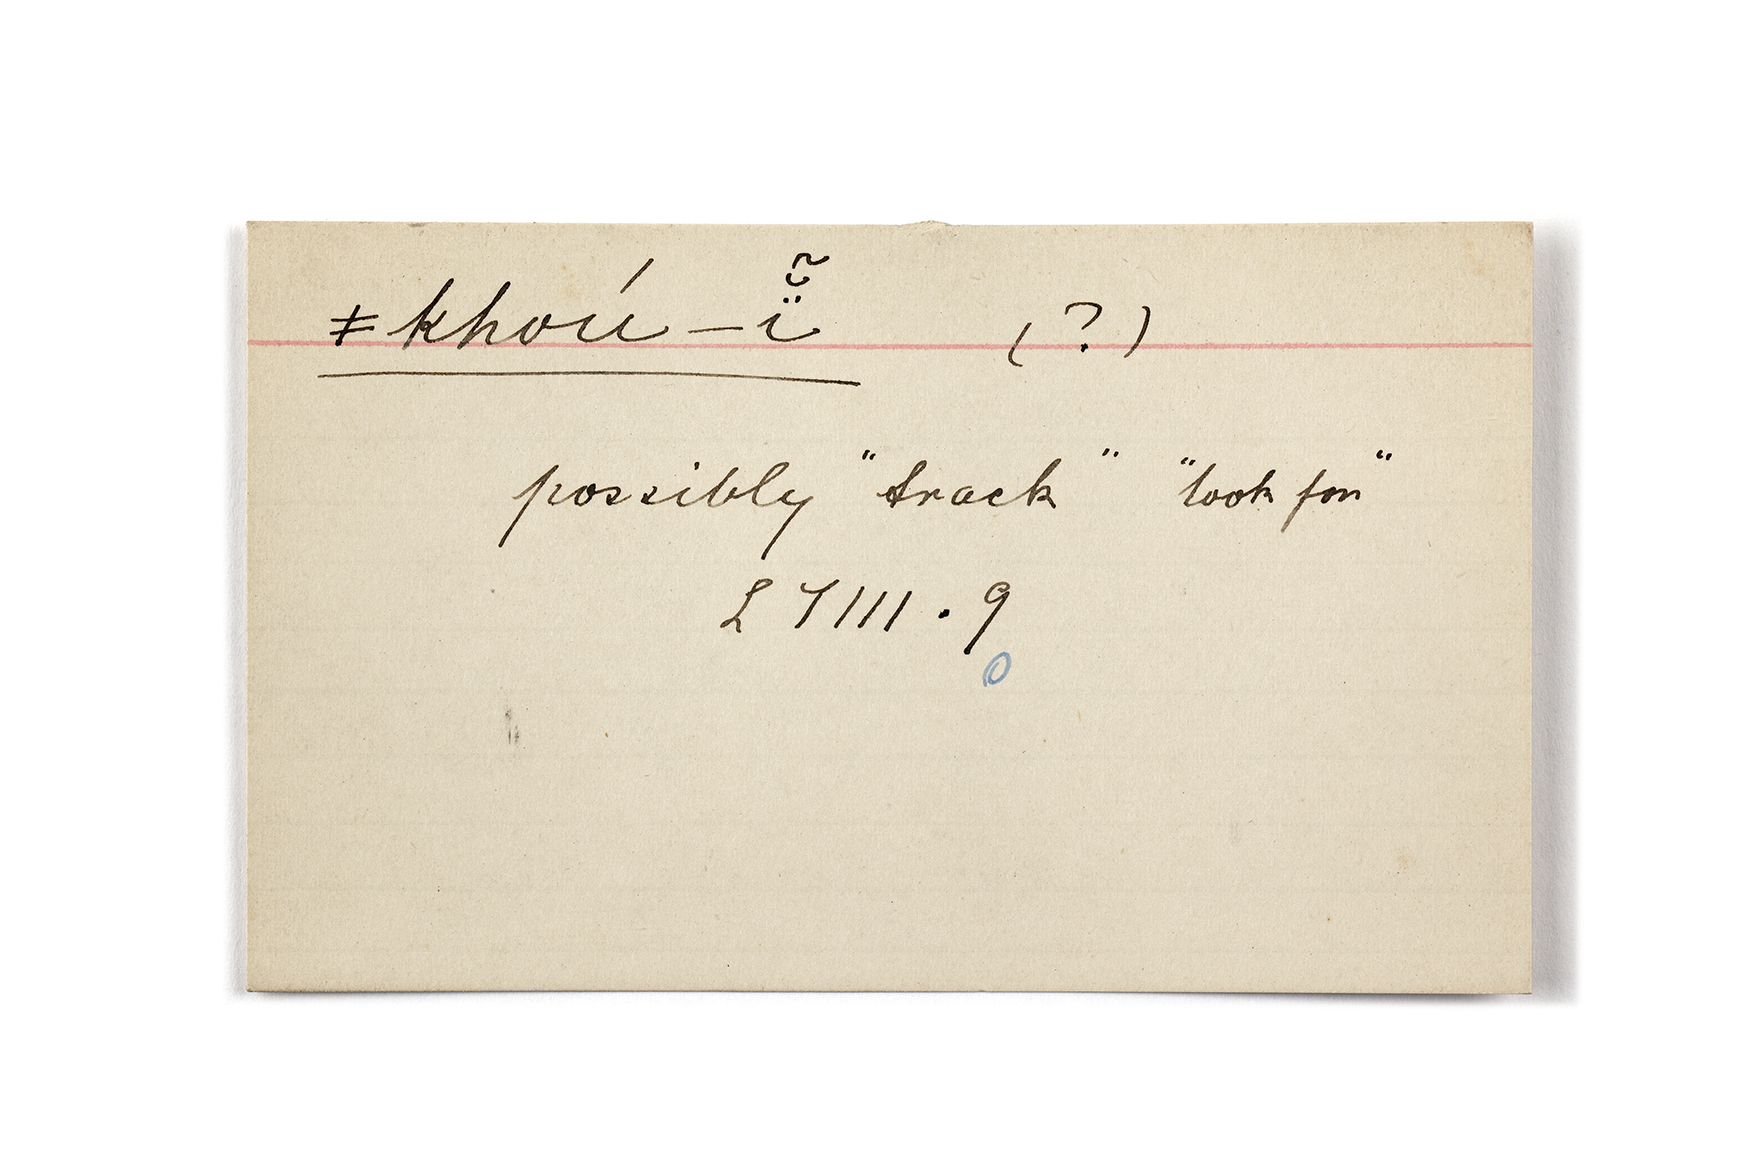 ǂkhoú-ï̆̃ (?)
possibly "track" "look for"
L VIII . 9